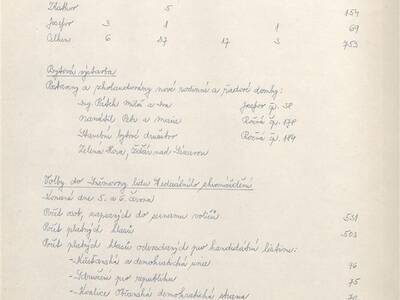 5 154
Josefov 3 1 1 69
Celkem 6 27 17 3 753
Bytová výstavba
a zkolaudovány nové rodinné a řadové domky:
Ing. Pátek a Josefov čp. 38
Petr a Marie Ročná čp. 178
Stavební bytové družstvo Ročná čp. 184
Zelená Hora, Žďár nad Sázavou
Volby do Sněmovny lidu Federálního shromáždění
Konané dne 5. a 6. června
Počet osob, zapsaných do seznamu voličů 531
Počet platných hlasů 503
Počet platných hlasů odevzdaných pro kandidátní listinu:
- Křesťanská a demokratická unie 96
- Sdružení pro republiku 75
- Koalice Občanská demokratická strana 70